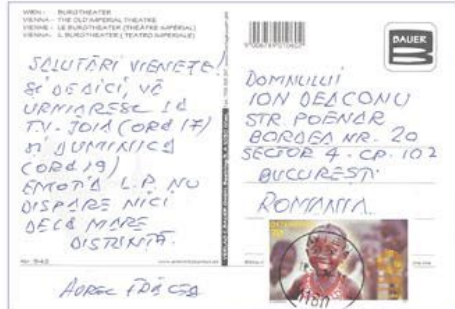 WIEN - BURGTHEATER
VIENNA - THE OLD IMPERIAL THEATRE
VIENNE - LE BURGTHEATER (THÉATRE IMPÉRIAL)
VIENNA - IL BURGTHEATER (TEATRO IMPERIALE)
SALUTĂRI VIENEZE!
ȘI DE AICI, VĂ
URMĂRESC LA
T.V. JOIA (ORA 17)
ȘI DUMINICA
(ORA 19)
EMOȚIA L.P. NU
DISPARE NICI
DE LA MARE
DISTANȚĂ.
Nr. 942
AUREL
BAUER
DOMNULUI
ION DEACONU
STR. POENAR
BORDEA NR. 20
SECTOR 4 - CP. 102
BUCUREȘTI
ROMANIA